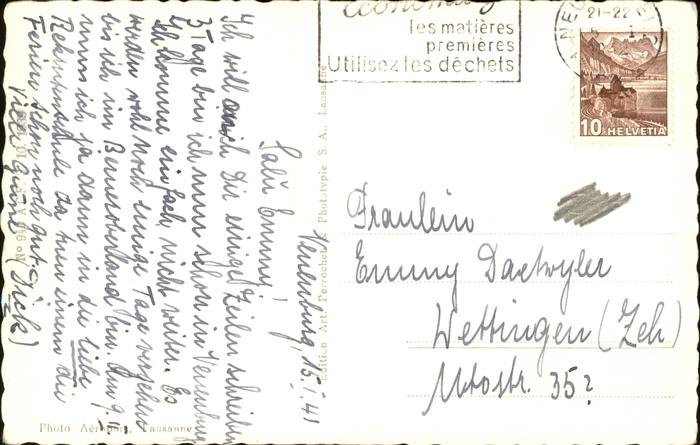 Economisez
les matières
premières
Utilisez les déchets
21-22
10 HELVETIA
Fräulein
Emmy Daetwyler
Wettingen (Zch)
Utostr. 35?
Neuenburg, 15.I.41
Salü Emmy!
Ich will auch Dir einige Zeilen schreiben
3 Tage bin ich nun schon in Neuenburg
Ich komme einfach nicht weiter. Es
werden wohl noch einige Tage vergehen
bis ich im Bernerland bin. Am 9.
muss ich ja dann in die liebe
Rekrutenschule da tun einem die
Ferien schon noch gut.
Viele Grüsse (Dick)
Edition Art. Perrochet Phototypie S. A., Lausanne
Photo Aéroport, Lausanne